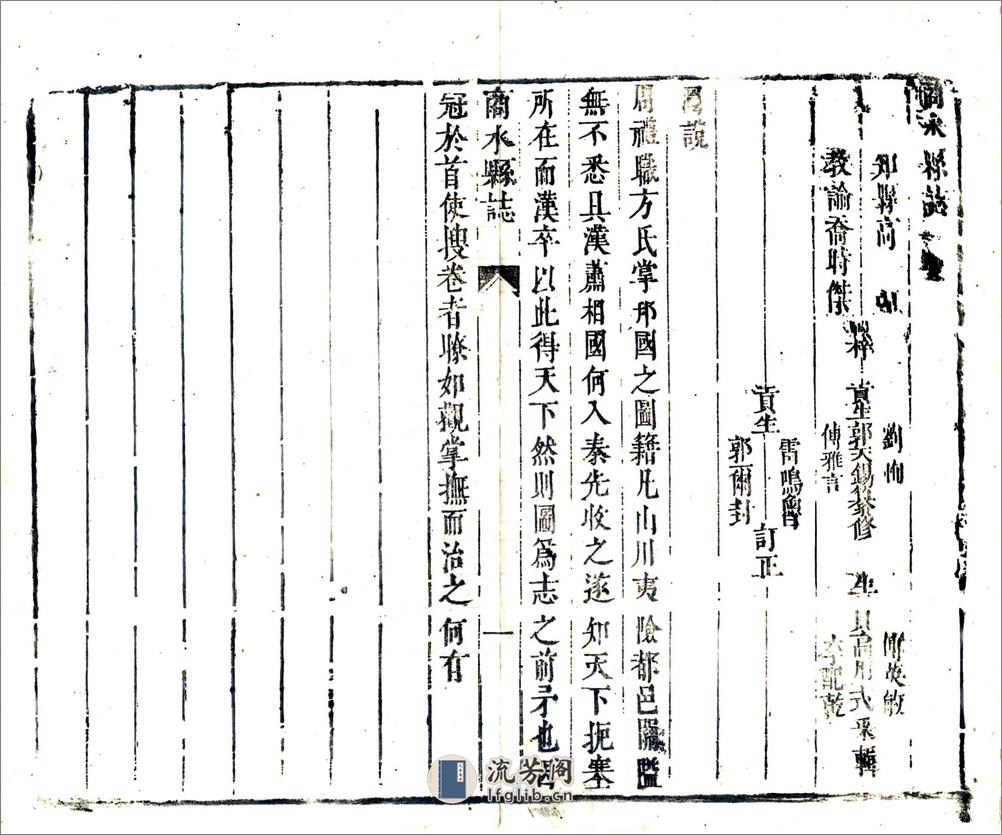 商水縣誌
知縣高
教諭喬時傑
梓
劉恂
貢生郭天錫纂修
傅雅言
傅英敏
生員高用式采輯
李配乾
雷鳴魯
貢生 訂正
郭爾封
圖說
周禮職方氏掌邦國之圖籍凡山川夷險都邑隘
無不悉具漢蕭相國何入秦先收之遂知天下扼塞
所在而漢卒以此得天下然則圖爲志之前矛也
商水縣誌 一
冠於首使搜卷者瞭如觀掌撫而治之何有
流芳阁
lfglib.cn